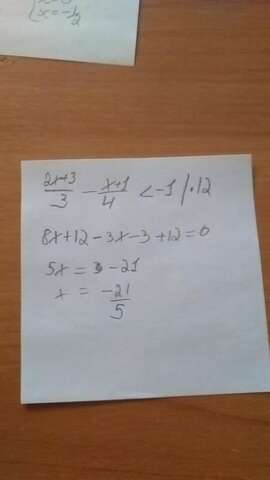 x = -1/2
(2x+3)/3 - (x+1)/4 < -1 / ·12
8x+12-3x-3+12=0
5x = -21
x = -21/5